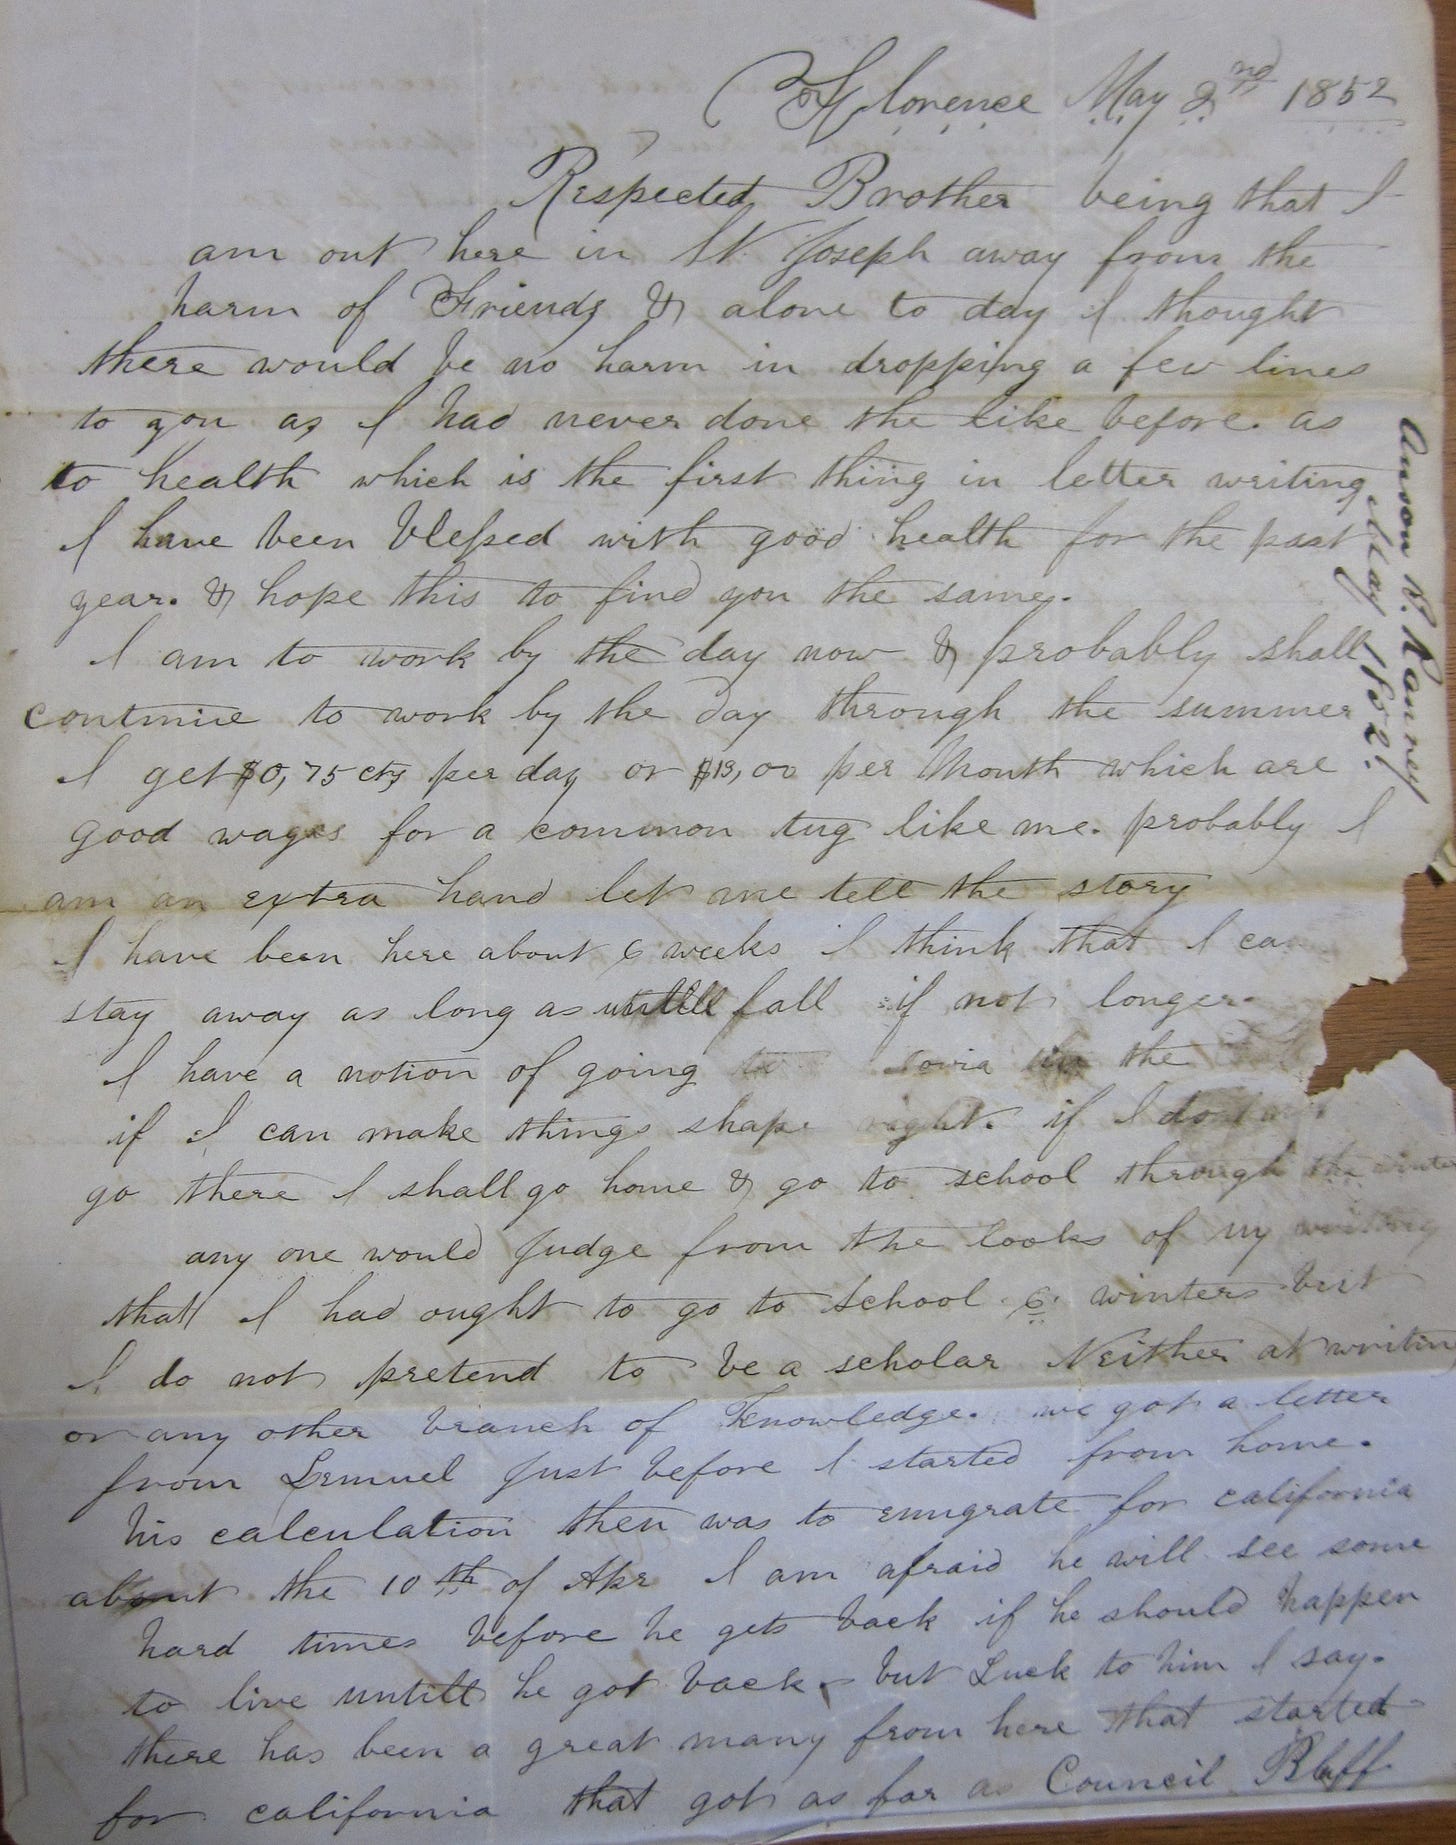 Florence May 2nd 1852
Respected Brother being that I
am out here in St. Joseph away from the
harm of Friends & alone to day I thought
there would be no harm in dropping a few lines
to you as I had never done the like before. as
to health which is the first thing in letter writing
I have been blessed with good health for the past
year. & hope this to find you the same.
I am to work by the day now & probably shall
continue to work by the day through the summer
I get $0,75 cts per day or $19,00 per Month which are
good wages for a common tug like me. probably I
am an extra hand let me tell the story
I have been here about 6 weeks I think that I ca
stay away as long as untill fall if not longer
I have a notion of going to the
if I can make things shape right. if I do
go there I shall go home & go to school through the winter
any one would Judge from the looks of my writing
that I had ought to go to School 6 winters but
I do not pretend to be a scholar Neither at writin
or any other branch of Knowledge. we got a letter
from Lemuel Just before I started from home.
his calculation then was to emigrate for california
about the 10th of Apr I am afraid he will see some
hard times before he gets back if he should happen
to live untill he got back. but Luck to him I say.
there has been a great many from here that started
for california that got as far as Council Bluff
Anson B. Ranney
May 1852.